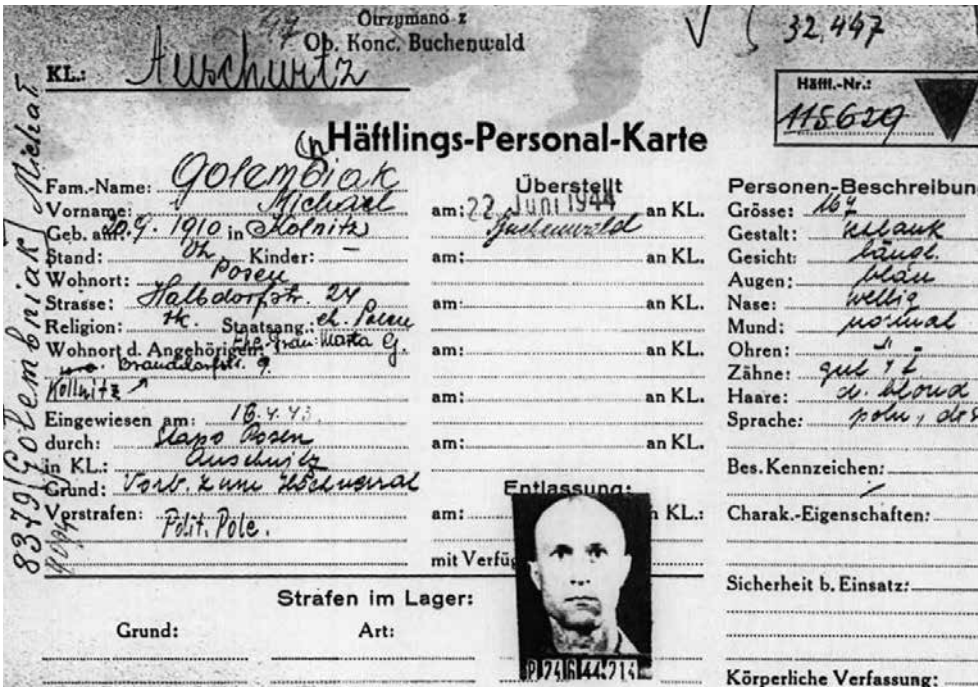 Otrzymano z
Ob. Konc. Buchenwald
32,447
KL.: Auschwitz
Häftl.-Nr.:
115629
Häftlings-Personal-Karte
Fam.-Name: Golembiak
Vorname: Michael
Geb. am: 20.9. 1910 in
Stand: Vh. Kinder: —
Wohnort: Posen
Strasse: Halbdorfstr. 27
Religion: rk. Staatsang.: eh. Polen
Wohnort d. Angehörigen: Ehefrau: Marta G.
Kollnitz
Eingewiesen am: 16.4.43
durch: Stapo Posen
in KL.: Auschwitz
Grund: Vorb. zum Hochverrat
Vorstrafen:
Polit. Pole.
Überstellt
am: 22. Juni 1944 an KL.
Buchenwald
am: an KL.
am: an KL.
am: an KL.
am: an KL.
am: an KL.
Entlassung:
am: KL.:
mit Verfüg
Personen-Beschreibun
Grösse: 164
Gestalt: schlank
Gesicht: längl.
Augen: blau
Nase: wellig
Mund: normal
Ohren: "
Zähne: gut
Haare: d. blond
Sprache: poln,
Bes. Kennzeichen:
Charak.-Eigenschaften:
Sicherheit b. Einsatz:
Körperliche Verfassung:
Strafen im Lager:
Grund: Art:
8379 Golembniak Michał